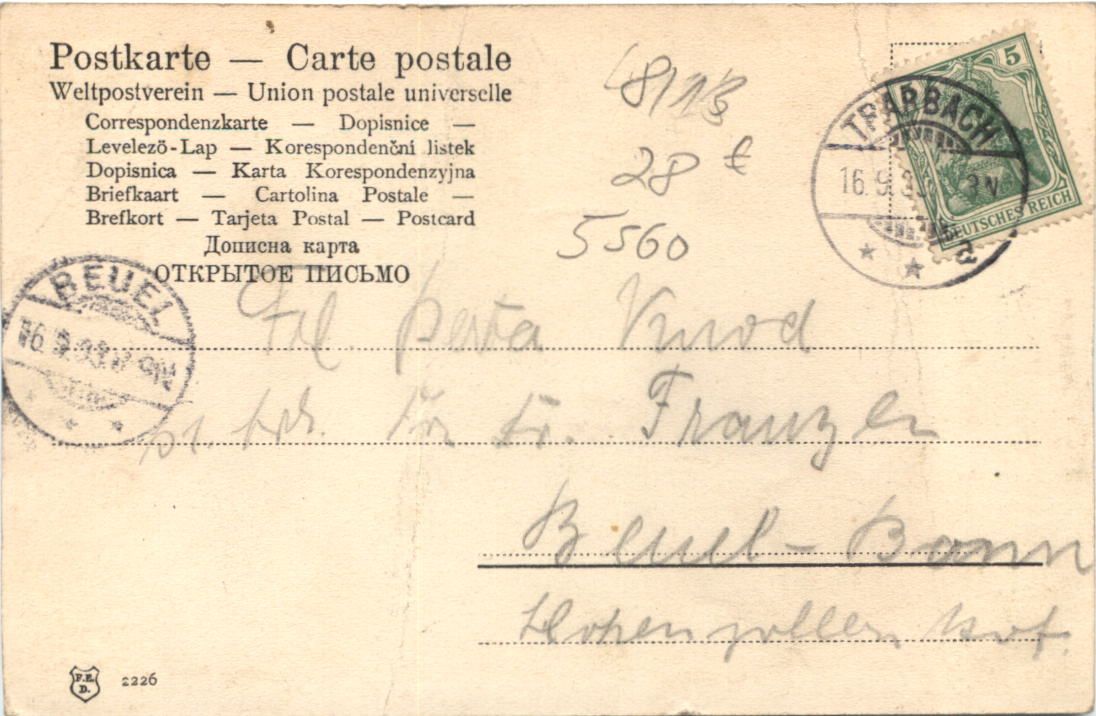 Postkarte — Carte postale
Weltpostverein — Union postale universelle
Correspondenzkarte — Dopisnice —
Levelezö-Lap — Korespondenční listek
Dopisnica — Karta Korespondenzyjna
Briefkaart — Cartolina Postale —
Brefkort — Tarjeta Postal — Postcard
Дописна карта
ОТКРЫТОЕ ПИСЬМО
28 €
5560
5
DEUTSCHES REICH
TRARBACH
16.9. 3N
a
BEUEL
16.9.03
Frl. Berta Knod
Franzen
Beuel-Bonn
Hohenzollern
F.E.D. 2226